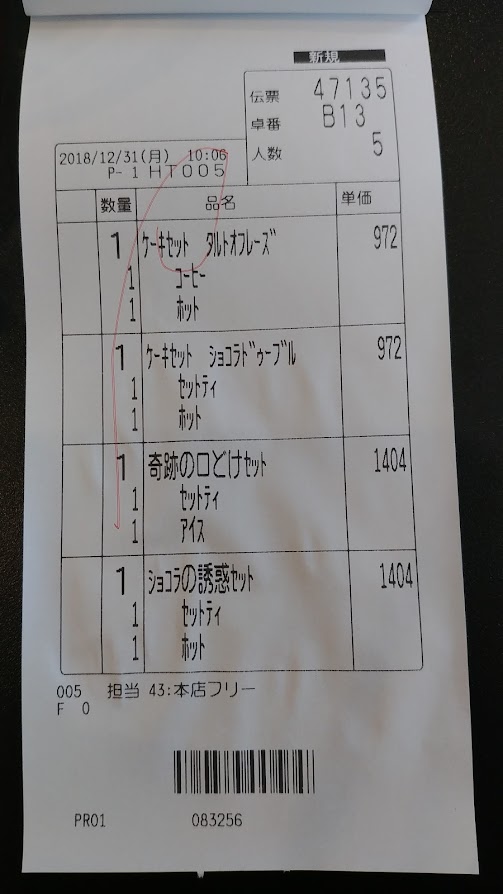 新規
伝票 47135
卓番 B13
人数 5
2018/12/31(月) 10:06
P- 1 HT005
数量 品名 単価
1 ｹｰｷｾｯﾄ ﾀﾙﾄｵﾌﾚｰｽﾞ 972
1 ｺｰﾋｰ
1 ﾎｯﾄ
1 ｹｰｷｾｯﾄ ｼｮｺﾗﾄﾞｩｰﾌﾞﾙ 972
1 ｾｯﾄﾃｨ
1 ﾎｯﾄ
1 奇跡の口どけｾｯﾄ 1404
1 ｾｯﾄﾃｨ
1 ｱｲｽ
1 ｼｮｺﾗの誘惑ｾｯﾄ 1404
1 ｾｯﾄﾃｨ
1 ﾎｯﾄ
005 担当 43:本店フリー
F 0
PR01 083256